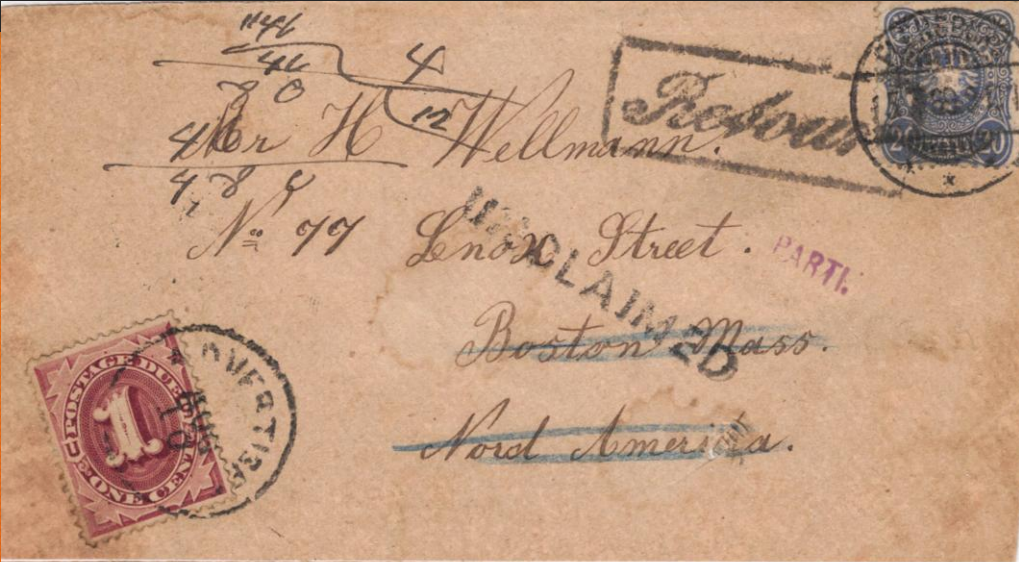 "46
46
4
8 0
12
Retour
20 20
Hr H Wellmann.
46
4 8
No 77 Lenox Street.
PARTI.
UNCLAIMED
Boston Mass.
Nord America.
POSTAGE DUE
1
ONE CENT
ADVERTISED
AUG
10